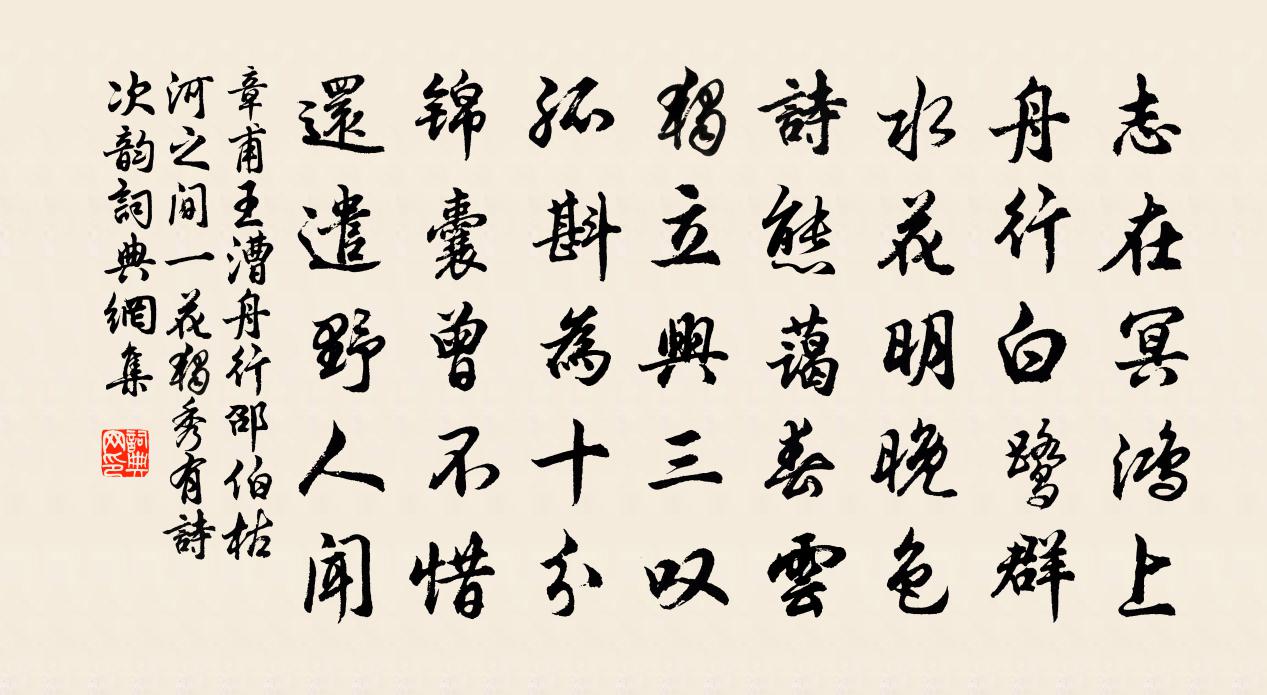 志在冥鴻上
舟行白鷺群
水花明晚色
詩態藹春雲
獨立興三叹
孤斟為十分
錦囊曾不惜
還遣野人聞
章甫王漕舟行邵伯枯
河之间一花獨秀有詩
次韵詞典網集
詞典网印